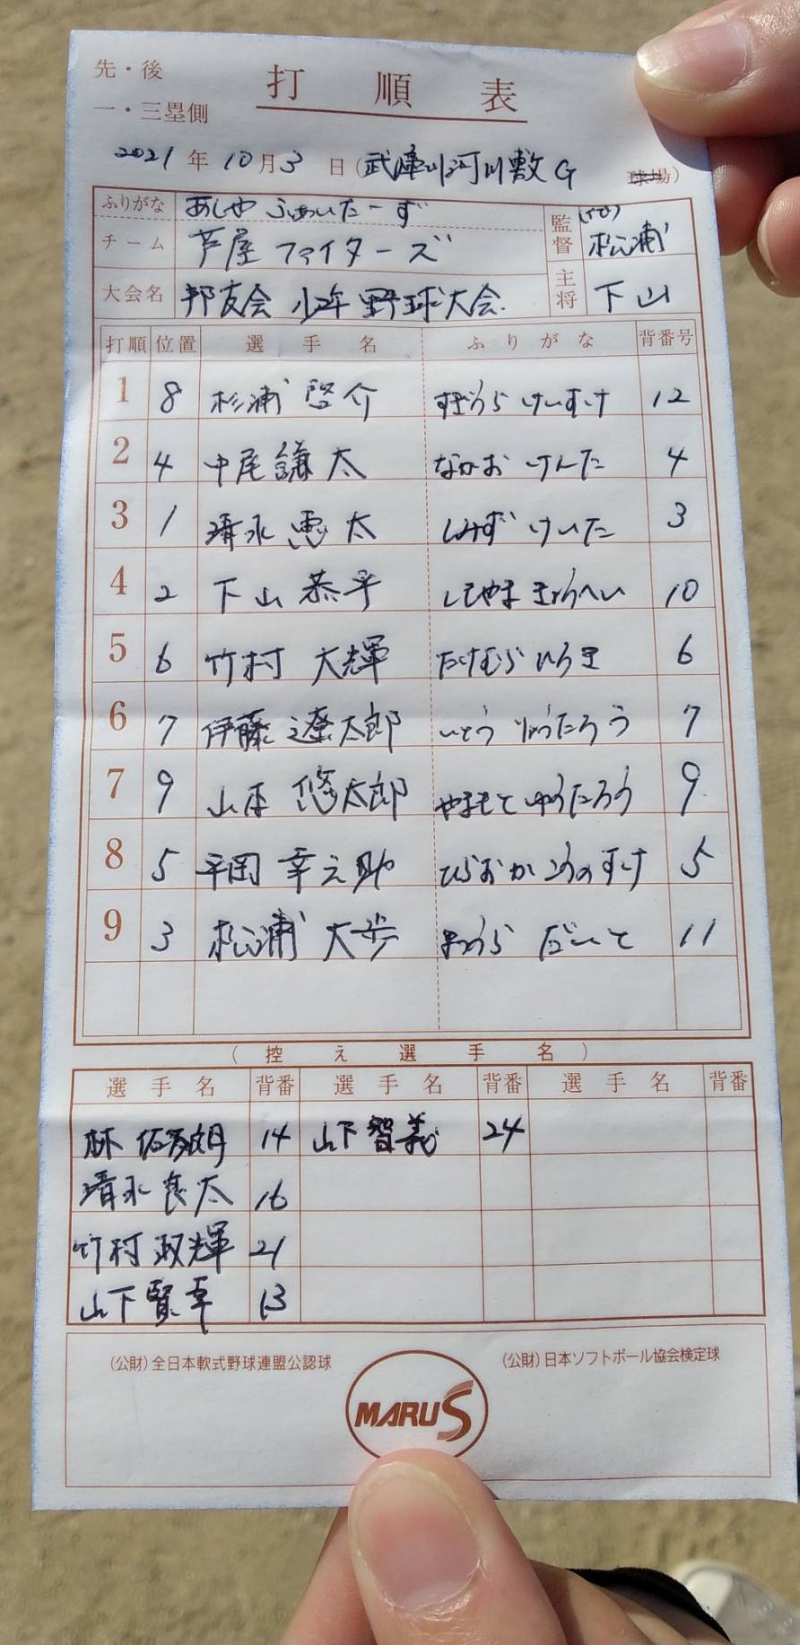 先・後 打順表
一・三塁側
2021年10月3日(武庫川河川敷G 球場)
ふりがな あしや ふぁいたーず
チーム 芦屋ファイターズ 監督 松浦
大会名 邦友会 少年野球大会. 主将 下山
打順 位置 選手名 ふりがな 背番号
1 8 杉浦 啓介 すぎうら けいすけ 12
2 4 中尾 謙太 なかお けんた 4
3 1 清水 恵太 しみず けいた 3
4 2 下山 恭平 しもやま きょうへい 10
5 6 竹村 大輝 たけむら ひろき 6
6 7 伊藤 遼太郎 いとう りょうたろう 7
7 9 山本 悠太郎 やまもと ゆうたろう 9
8 5 平岡 幸之助 ひらおか こうのすけ 5
9 3 松浦 大歩 まつうら だいと 11
(控え選手名)
選手名 背番 選手名 背番 選手名 背番
林 14 山下 智義 24
清水 良太 16
竹村 政輝 21
山下 賢幸 13
(公財)全日本軟式野球連盟公認球 (公財)日本ソフトボール協会検定球
MARUS